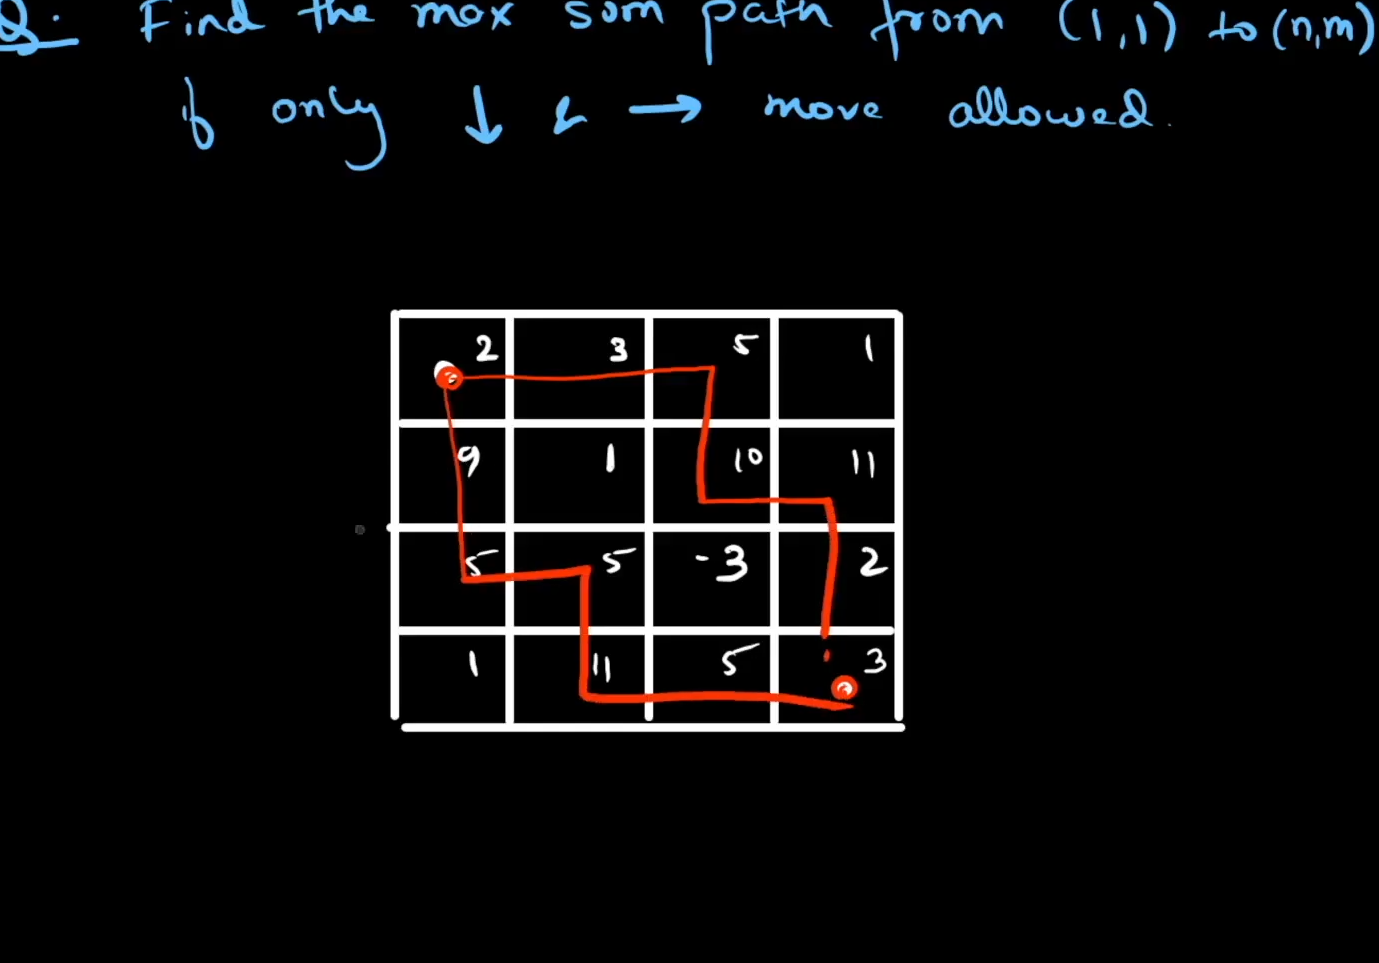 Q. Find the max sum path from (1,1) to (n,m)
if only ↓ & → move allowed.
2 3 5 1
9 1 10 11
5 5 -3 2
1 11 5 3